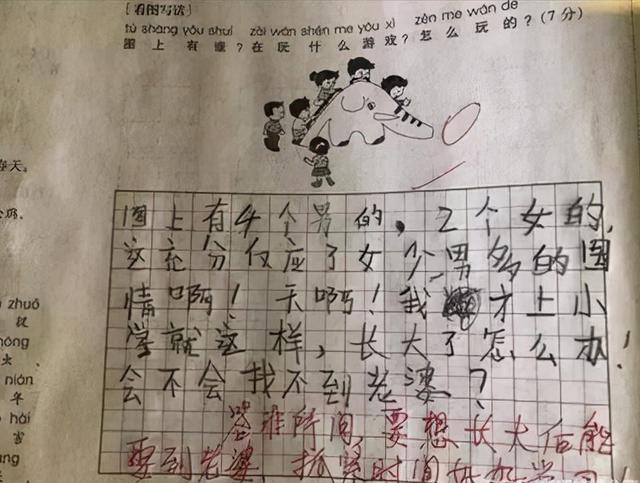 【看图写话】
tú shàng yǒu shuí zài wán shén me yóu xì zěn me wán de
图上有谁？在玩什么游戏？怎么玩的？(7分)
春天。
zhuō
nián
年
hái
图上有4个男的，2个女的，
这充分仅应了女少男多的国
情啊！天啊！我才上小
学就这样，长大了怎么办！
会不会找不到老婆？
答非所问，要想长大后能
娶到老婆，抓紧时间好好学习！